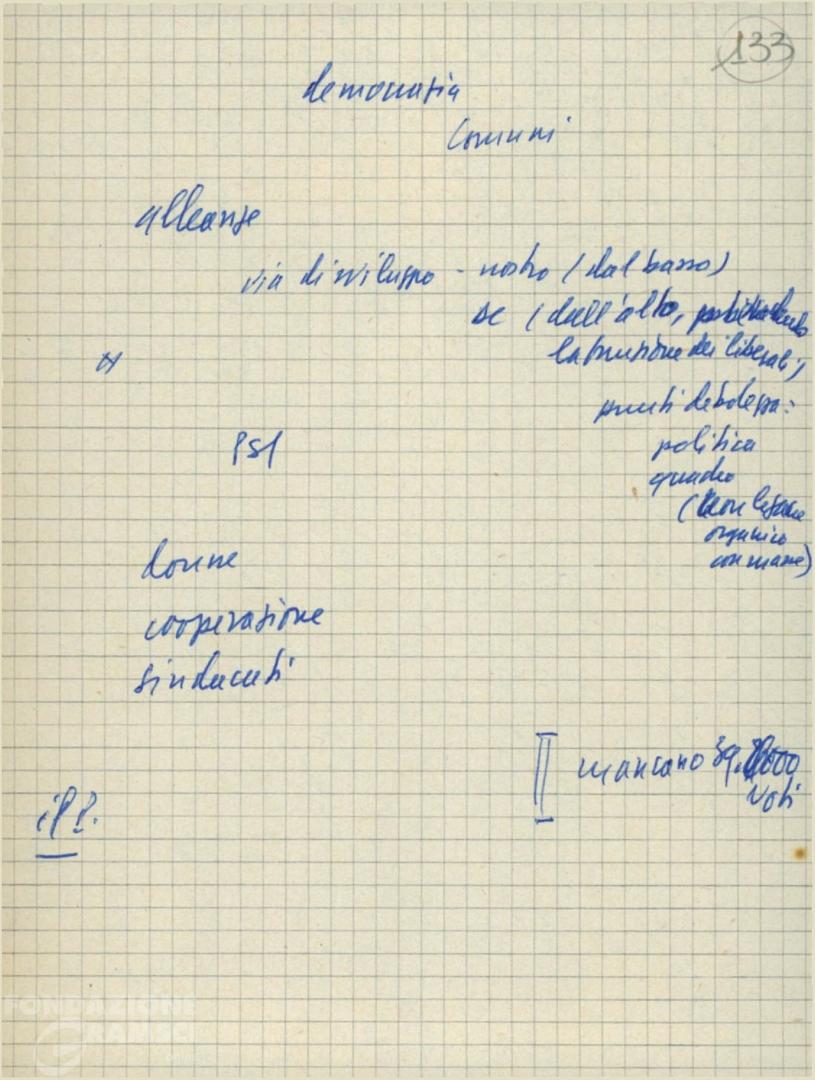 133
democrazia
Comuni
alleanze
via di sviluppo - nostro (dal basso)
DC (dall'alto,
la funzione dei liberali)
punti debolezza:
politica
quadro
(non legame
organico
con masse)
PSI
donne
cooperazione
sindacati
mancano 39.000
voti
il P.
FONDAZIONE
GRAMSCI